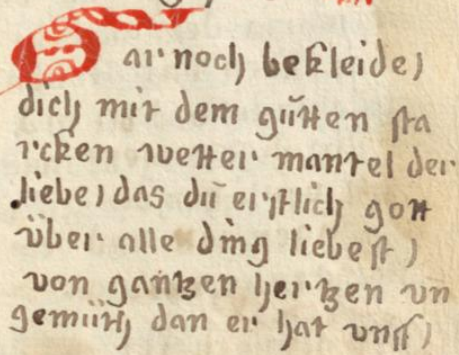 Darnoch bekleide /
dich mit dem gůtten sta
rcken wetter mantel der
liebe / das dū erstlich gott
über alle ding liebest /
von gantzen hertzen vn̄
gemüth dan er hat vnß /